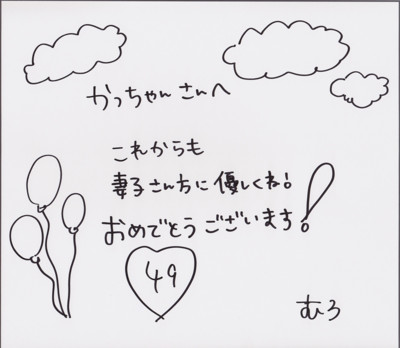 かっちゃんさんへ
これからも
妻子さんちに優しくね!
おめでとうございます!
49
むろ